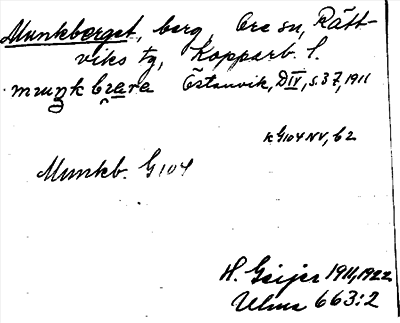 Munkberget, berg, Ore sn, Rätt-
viks tg, Kopparb. l.
Östanvik, D IV, s. 37, 1911
K G104 NV, b2
Munkb. G104
H. Geijer 1911, 1922
Ulma 663:2